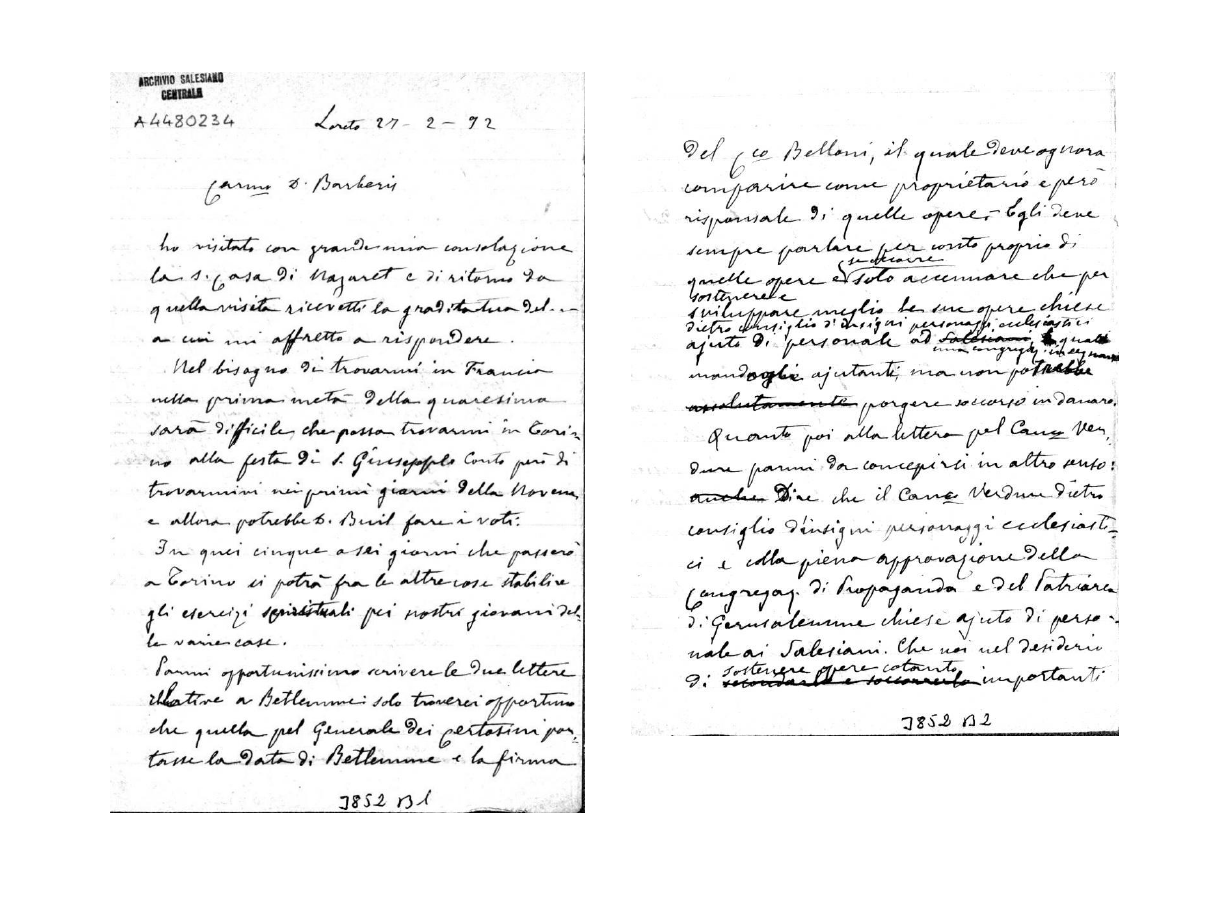 ARCHIVIO SALESIANO
CENTRALE
A4480234
Loreto 27-2-92
Carmo D. Barberis
ho visitato con grande mia consolazione
la S. Casa di Nazaret e di ritorno da
quella visita ricevetti la gradita tua del...
a cui mi affretto a rispondere.
Nel bisogno di trovarmi in Francia
nella prima metà della quaresima
sarà difficile che possa trovarmi in Tori-
no alla festa di S. Giuseppe Conto però di
trovarmivi nei primi giorni della Novena
e allora potrebbe D. Buil fare i voti:
In quei cinque o sei giorni che passerò
a Torino si potrà fra le altre cose stabilire
gli esercizi spirituali pei nostri giovani del-
le varie case.
Parmi opportunissimo scrivere le due lettere
relative a Betlemme: solo troverei opportuno
che quella pel Generale dei Certosini por-
tasse la data di Betlemme e la firma
J852 B1
del Cco Belloni, il quale deve ognora
comparire come proprietario e però
risponsale di quelle opere. Egli deve
sempre parlare per conto proprio di
se occorre
quelle opere e solo accennare che per
sostenere e
sviluppare meglio le sue opere chiese
dietro consiglio d'insigni personaggi ecclesiastici
ajuto di personale ad Salesiani, quali
una congreg.
ajutanti, ma non potrebbe
assolutamente porgere soccorso in danaro.
Quanto poi alla lettera pel Canco Ver-
dure parmi da concepirsi in altro senso:
anche Dire che il Canco Verdure dietro
consiglio d'insigni personaggi ecclesiasti-
ci e colla piena approvazione della
Congregaz. di Propaganda e del Patriarca
di Gerusalemme chiese ajuto di perso-
nale ai Salesiani. Che noi nel desiderio
sostenere opere cotanto
di secondarlo e soccorrerlo importanti
J852 B2